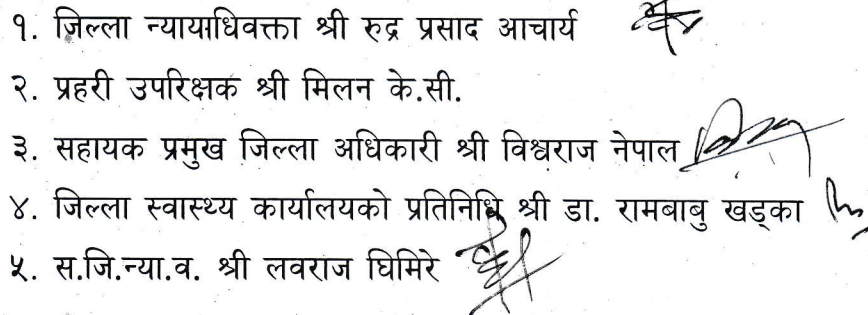 १. जिल्ला न्यायाधिवक्ता श्री रुद्र प्रसाद आचार्य
२. प्रहरी उपरिक्षक श्री मिलन के.सी.
३. सहायक प्रमुख जिल्ला अधिकारी श्री विश्वराज नेपाल
४. जिल्ला स्वास्थ्य कार्यालयको प्रतिनिधि श्री डा. रामबाबु खड्का
५. स.जि.न्या.व. श्री लवराज घिमिरे